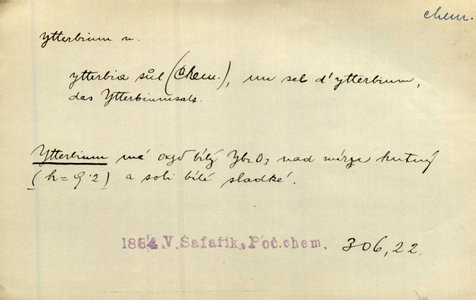 chem.
ytterbium n.
ytterbia sůl (Chem.), un sel d'ytterbium,
das Ytterbiumsalz.
Ytterbium má oxyd bílý Yb2O3 nad míru hutný
(h=9·2) a soli bílé sladké.
1884, V. Šafařík, Poč. chem. 306,22.